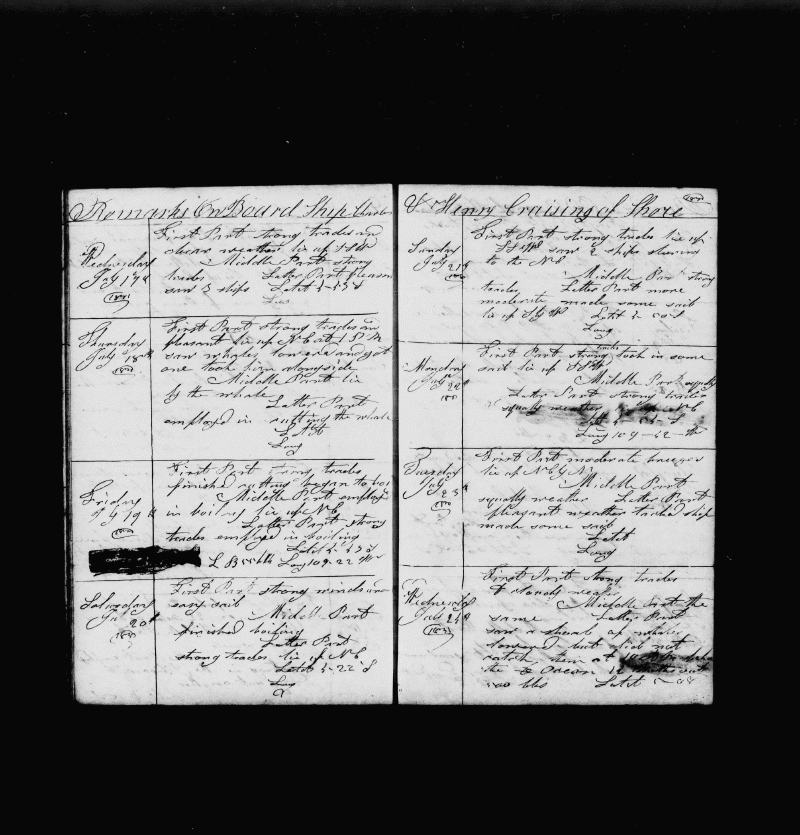 Remarks On Board Ship Charles
Wednesday
July 17th
First Part strong trades and
clear weather lie up
Middle Part strong
trades Latter Part pleasant
saw 3 ships Latit
Thursday
July 18th
First Part strong trades and
pleasant lie up N E at 1 P M
saw whales lowered and got
one took him alongside
Middle Part lie
by the whale
Latter Part
employed in cutting the whale
Latt
Long
Friday
19th
First Part strong trades
finished cutting began to boil
Middle Part employ
in boiling lie up N E
Latter Part strong
trades employed in boiling
Latit
bbls Long 109-22 W
Saturday
July 20th
First Part strong winds and
easy sail
Middle Part
finished boiling
Latter Part
strong trades lie up N E
Latit 5-22 S
Long
& Henry Cruising of Shore
Sunday
July 21st
First Part strong trades lie up
saw 2 ships steering
to the N E
Middle Part strong
trades Latter Part more
moderate made some sail
lie up S by W
Latit
Long
Monday
July 22nd
First Part strong trades took in some
sail lie up
Middle Part squally
Latter Part strong trades
& squally weather N E
Latit
Long 109-42 W
Tuesday
July
23d
First Part moderate breezes
lie up N E by N
Middle Part
squally weather Latter Part
pleasant weather tacked ship
made some sail
Latit
Long
Wednesday
July 24th
First Part strong trades
& cloudy weather
Middle Part the
same Latter Part
saw a shoal of whales
lowered but did not
catch them at
the
bbls Latit